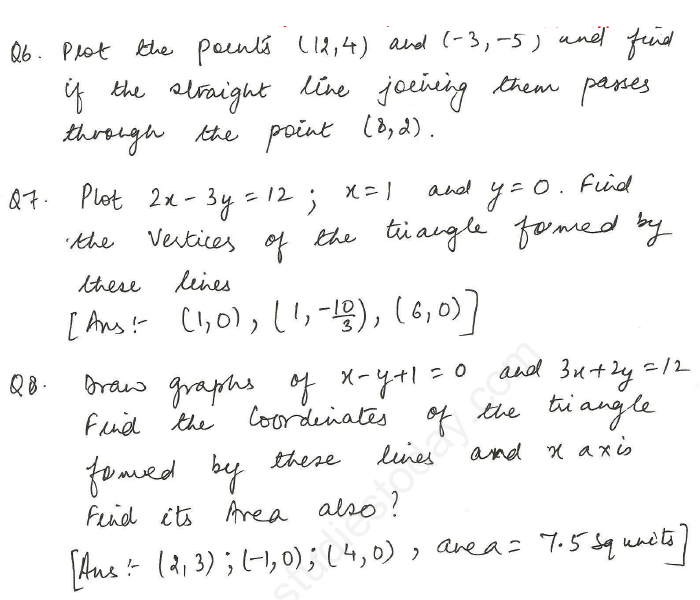 Q6. Plot the points (12,4) and (-3,-5) and find
if the straight line joining them passes
through the point (8,2).
Q7. Plot 2x - 3y = 12 ; x = 1 and y = 0. Find
the Vertices of the triangle formed by
these lines
[Ans :- (1,0), (1, -10/3), (6,0)]
Q8. Draw graphs of x-y+1 = 0 and 3x+2y = 12
Find the Coordinates of the triangle
formed by these lines and x axis
Find its Area also?
[Ans :- (2,3) ; (-1,0) ; (4,0) , area = 7.5 sq units]
studiestoday.com